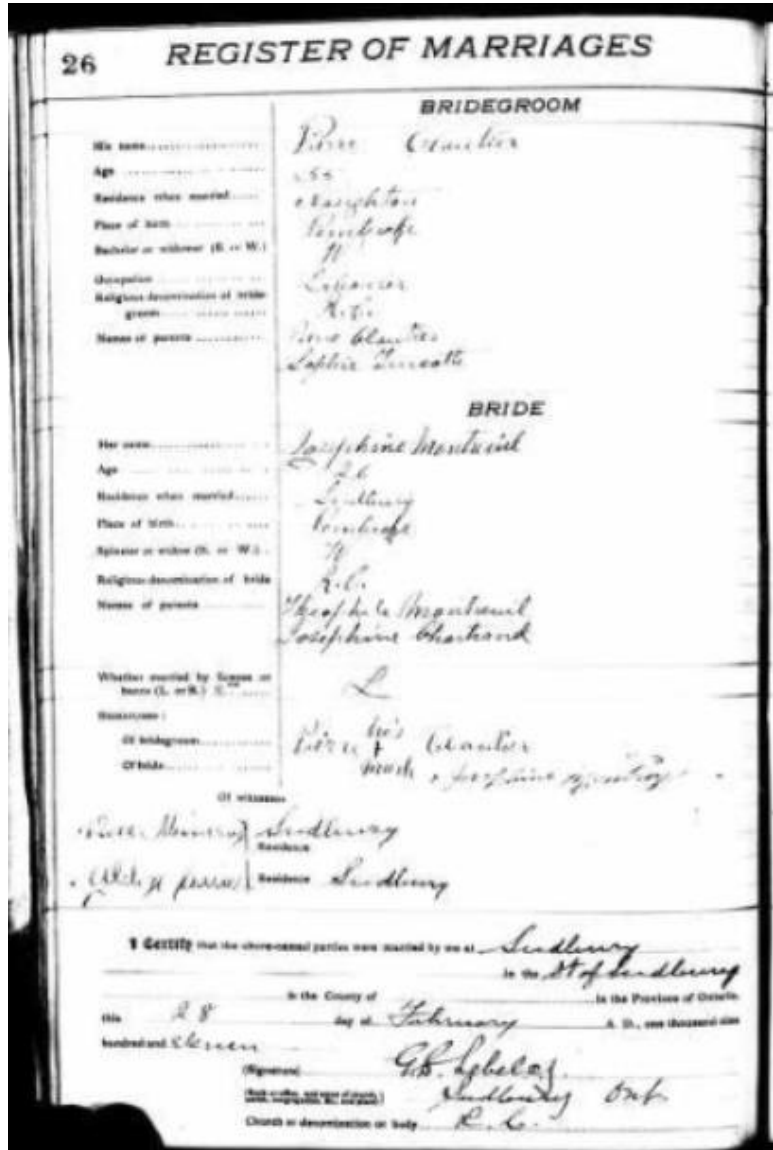 26 REGISTER OF MARRIAGES
BRIDEGROOM
His name
Pierre
Age
Residence when married
Naughton
Place of birth
Pembroke
Bachelor or widower (B. or W.)
W
Occupation
Laborer
Religious denomination of bride-
groom
R.C.
Names of parents
Sophie Turcotte
BRIDE
Her name
Josephine Montreuil
Age
Residence when married
Sudbury
Place of birth
Pembroke
Spinster or widow (S. or W.)
W
Religious denomination of bride
R.C.
Names of parents
Theophile Montreuil
Josephine Chartrand
Whether married by license or
banns (L. or B.)
L
Signatures:
his
Of bridegroom
Pierre +
mark
Of bride
Josephine
Of witnesses
Sudbury
Residence
Residence Sudbury
I Certify that the above-named parties were married by me at Sudbury
in the Dt of Sudbury
in the County of in the Province of Ontario.
this 28 day of February A. D., one thousand nine
hundred and eleven
(Signature)
Sudbury Ont
Church or denomination or body R.C.